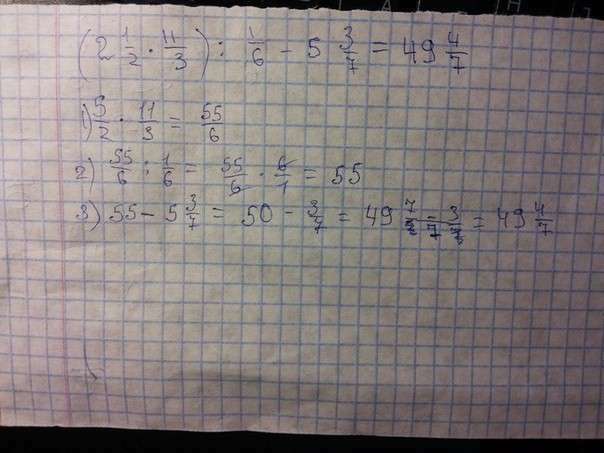 (2 1/2 · 11/3) : 1/6 - 5 3/7 = 49 4/7
1) 5/2 · 11/3 = 55/6
2) 55/6 : 1/6 = 55/6 · 6/1 = 55
3) 55 - 5 3/7 = 50 - 3/7 = 49 7/7 - 3/7 = 49 4/7